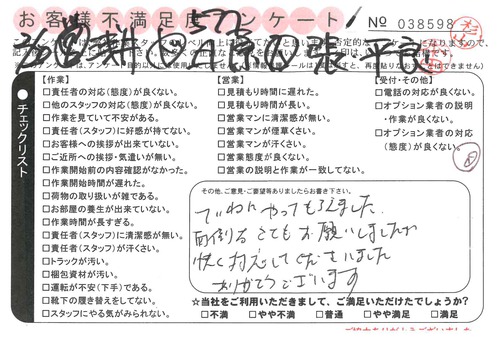 お客様不満足度アンケート
№ 038598
【作業】
□責任者(態度)が良くない。
□他のスタッフの対応(態度)が良くない。
□作業を見ていて不安がある。
□責任者(スタッフ)に好感が持てない。
□お客様への挨拶が出来ていない。
□ご近所への挨拶・気遣いが無い。
□作業開始前の内容確認がなかった。
□作業開始時間が遅れた。
□荷物の取り扱いが雑である。
□お部屋の養生が出来ていない。
□作業時間が長すぎる。
□責任者(スタッフ)に清潔感が無い。
□責任者(スタッフ)が汗くさい。
□トラックが汚い。
□梱包資材が汚い。
□運転が不安(下手)である。
□靴下の履き替えをしてない。
□スタッフにやる気がみられない。
チェックリスト
【営業】
□見積もり時間に遅れた。
□見積もり時間が長い。
□営業マンに清潔感が無い。
□営業マンが煙草くさい。
□営業マンが汗くさい。
□営業態度が良くない。
□営業の説明と作業が一致してない。
【受付・その他】
□電話の対応が良くない。
□オプション業者の説明
・作業が良くない。
□オプション業者の対応
(態度)が良くない。
その他、ご意見・ご要望等ありましたらお書き下さい。
ていねいにやってもらえました
面倒なことでもお願いしましたが
快く対応してくださいました
ありがとうございます
☆当社をご利用いただきまして、ご満足いただけたでしょうか?
□不満 □やや不満 □普通 □やや満足 □満足
ご協力ありがとうございました